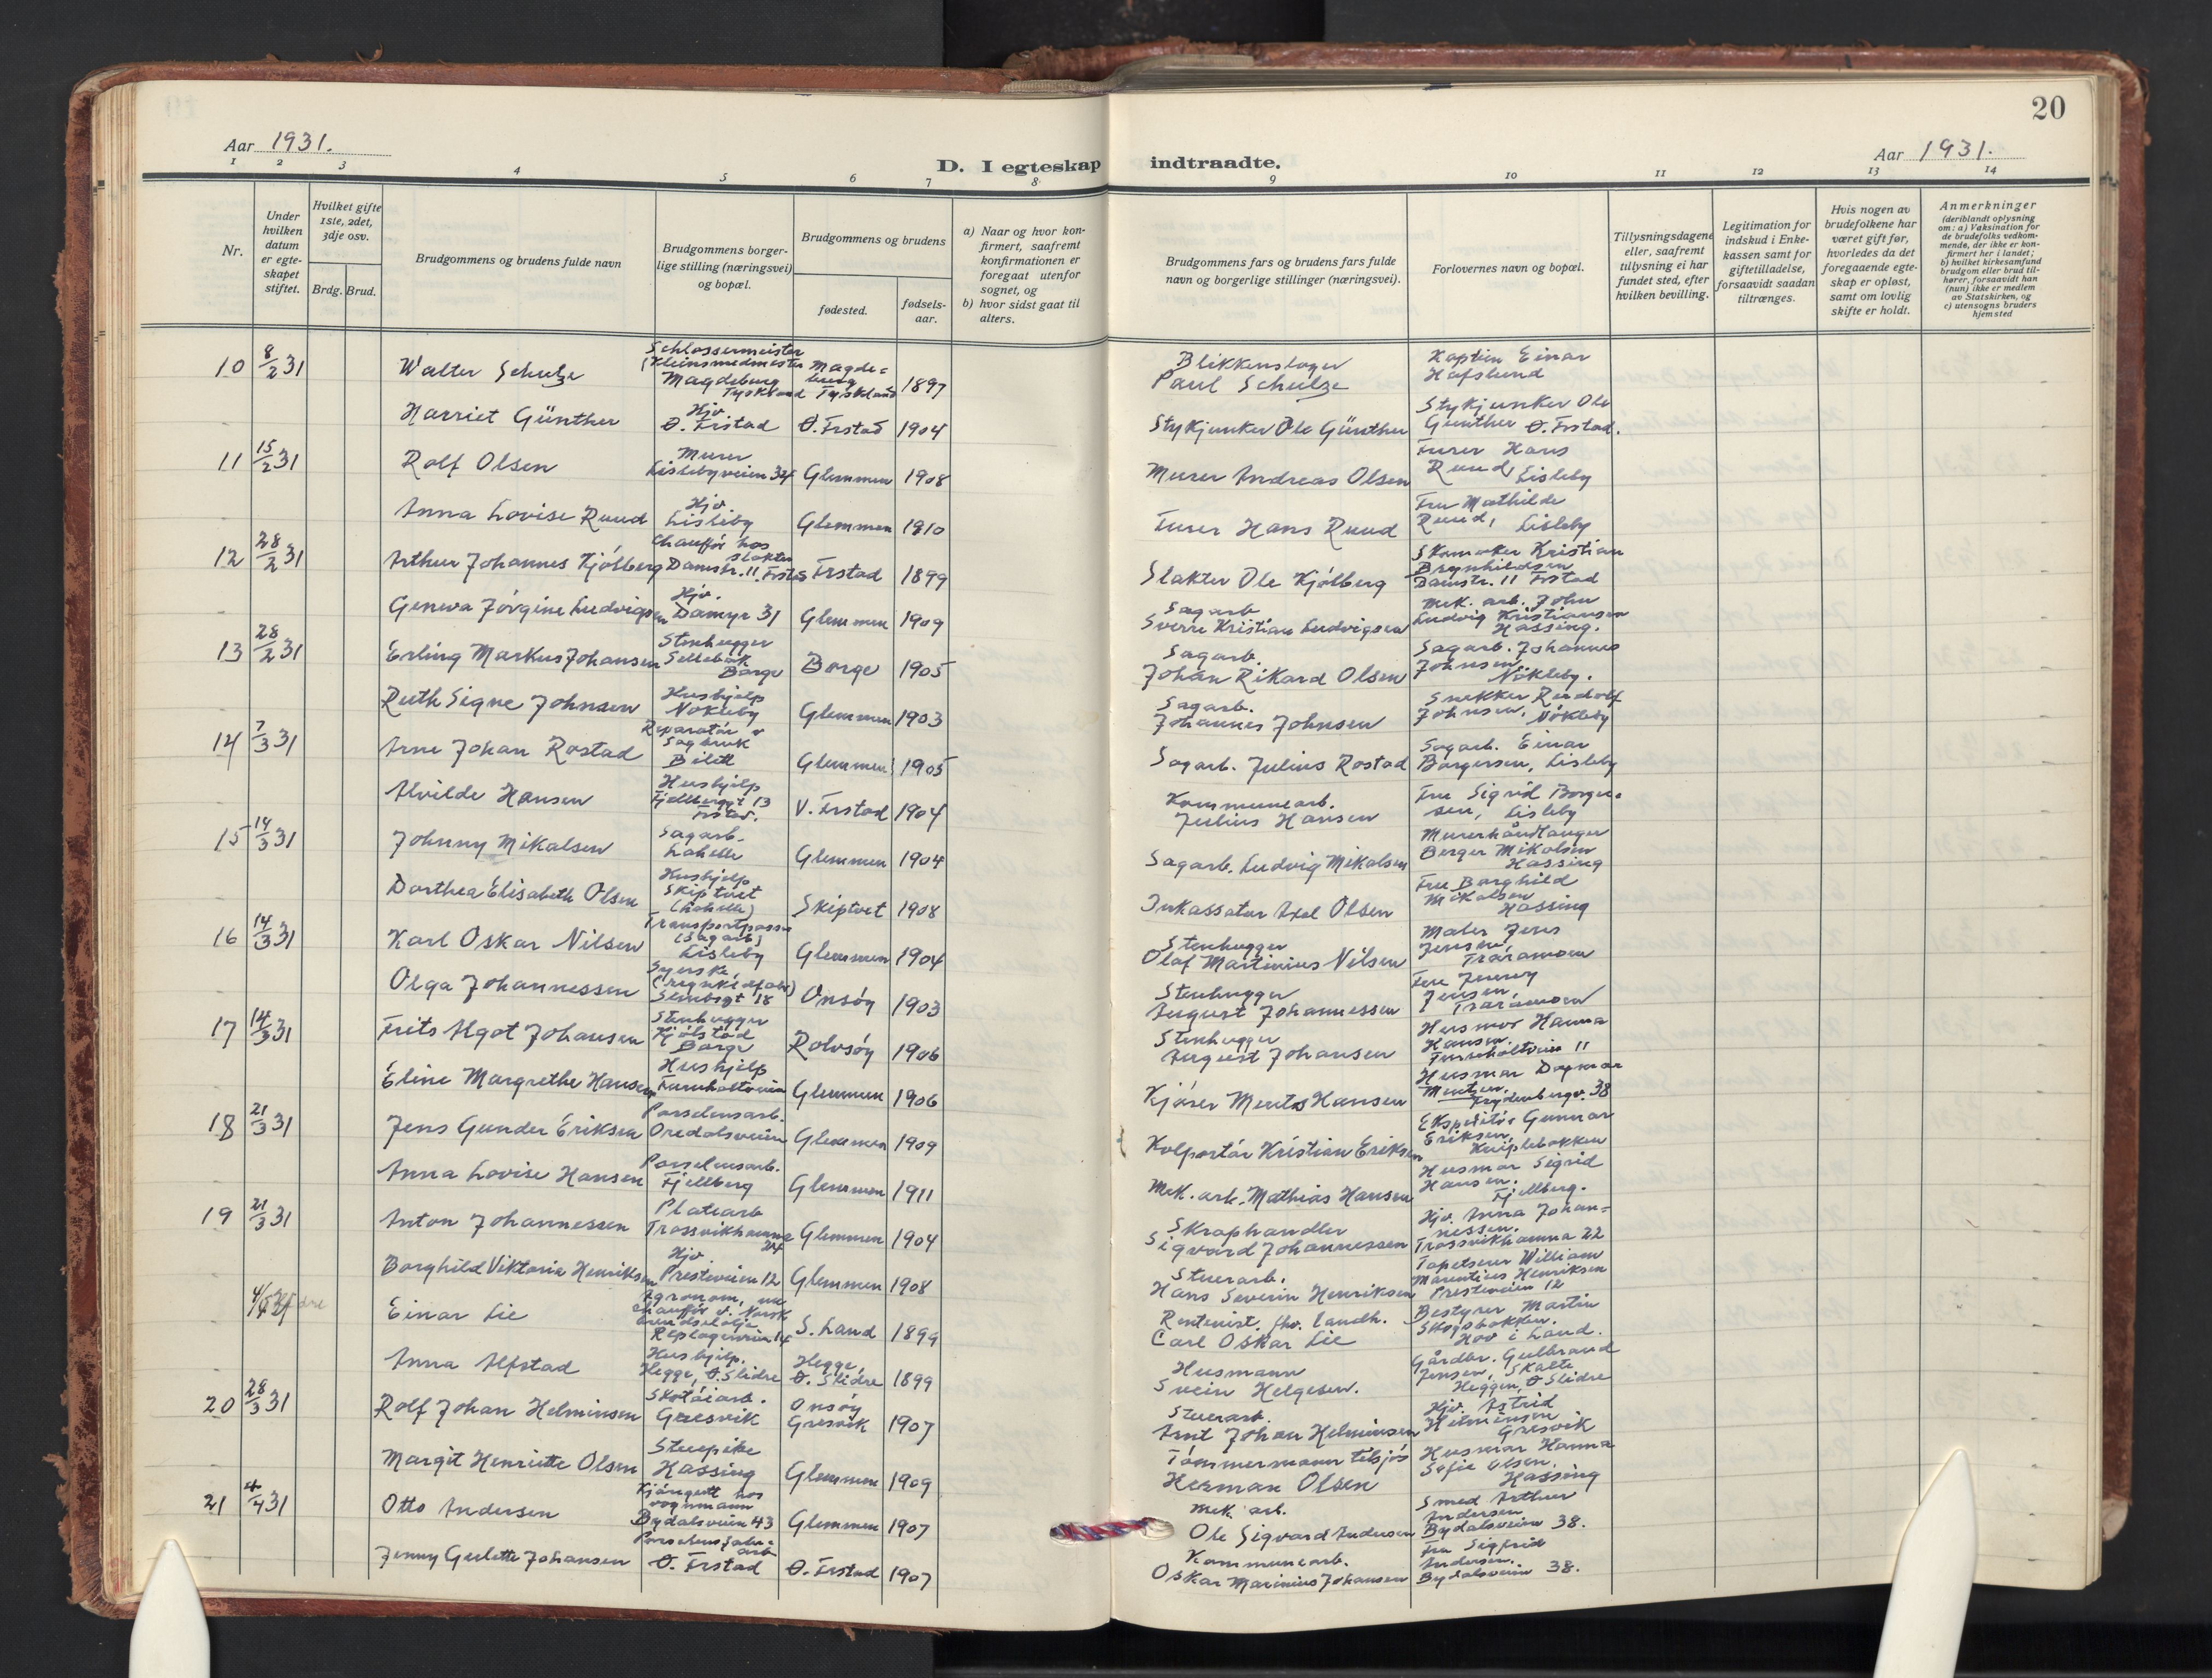 20
Aar 1931.
Aar 1931.
D. I egteskap indtraadte.
1 2 3 4 5 6 7 8 9 10 11 12 13 14
Nr.
Under hvilken datum er egteskapet stiftet.
Hvilket gifte 1ste, 2det, 3dje osv.
Brdg. Brud.
Brudgommens og brudens fulde navn
Brudgommens borgerlige stilling (næringsvei) og bopæl.
Brudgommens og brudens
fødested.
fødselsaar.
a) Naar og hvor konfirmert, saafremt konfirmationen er foregaat utenfor sognet, og
b) hvor sidst gaat til alters.
Brudgommens fars og brudens fars fulde navn og borgerlige stillinger (næringsvei).
Forlovernes navn og bopæl.
Tillysningsdagene eller, saafremt tillysning ei har fundet sted, efter hvilken bevilling.
Legitimation for indskud i Enkekassen samt for giftetilladelse, forsaavidt saadan tiltrænges.
Hvis nogen av brudefolkene har været gift før, hvorledes da det foregaaende egteskap er opløst, samt om lovlig skifte er holdt.
Anmerkninger
(deriblandt oplysning om: a) Vaksination for de brudefolks vedkommende, der ikke er konfirmert her i landet; b) hvilket kirkesamfund brudgom eller brud tilhører, forsaavidt han (hun) ikke er medlem av Statskirken, og c) utensogns bruders hjemsted
10 8/2 31 Walter Schulze Schlossermeister (Kleinsmedmester Magdeburg Tyskland Magdeburg Tyskland 1897 Blikkenslager Paul Schulze Kaptein Einar Hafslund
Harriet Günther Hjv. Ø. Frstad Ø. Frstad 1904 Stykjunker Ole Günther Stykjunker Ole Günther Ø. Frstad.
11 15/2 31 Rolf Olsen Murer Lislebyveien 34 Glemmen 1908 Murer Andreas Olsen Furer Hans Ruud, Lisleby
Anna Lovise Ruud Hjv. Lisleby Glemmen 1910 Furer Hans Ruud Fru Mathilde Ruud, Lisleby
12 28/2 31 Arthur Johannes Kjölberg Chauför hos slakter Damstr. 11. Frstad Frstad 1899 Slakter Ole Kjölberg Skomaker Kristian Brynhildsen Damstr. 11 Frstad
Geneva Jörgine Ludvigsen Hjv. Damyr 31 Glemmen 1909 Sagarb. Sverre Kristian Ludvigsen Mek. arb. John Ludvig Kristiansen Hassing.
13 28/2 31 Erling Markus Johansen Stenhugger Sellebak Borge Borge 1905 Sagarb. Johan Rikard Olsen Sagarb. Johannes Johnsen Nökleby.
Ruth Signe Johnsen Hushjelp Nökleby Glemmen 1903 Sagarb. Johannes Johnsen Snekker Rudolf Johnsen, Nökleby
14 7/3 31 Arne Johan Rostad Reparatör v Sagbruk Bilett Glemmen 1905 Sagarb. Julius Rostad Sagarb. Einar Borgersen, Lisleby
Alvilde Hansen Hushjelp Fjellberggt 13 Frstad. V. Frstad 1904 Kommunearb. Julius Hansen Fru Sigrid Borgersen, Lisleby
15 14/3 31 Johnny Mikalsen Sagarb. Lahelle Glemmen 1904 Sagarb. Ludvig Mikalsen Murerhåndlanger Berger Mikalsen Hassing
Dorthea Elisabeth Olsen Hushjelp Skiptvet (Lahelle) Skiptvet 1908 Inkassator Axel Olsen Fru Borghild Mikalsen Hassing
16 14/3 31 Karl Oskar Nilsen (Sagarb) Lisleby Glemmen 1904 Stenhugger Olaf Martinius Nilsen Maler Jens Jensen, Traramoen
Olga Johannessen Syerske, 18 Onsöy 1903 Stenhugger August Johannessen Fru Jenny Jensen, Traramoen
17 14/3 31 Frits Agot Johansen Stenhugger Kjölstad Borge Rolvsöy 1906 Stenhugger August Johansen Husmor Hanna Hansen. Furuholtveien 11
Eline Margrethe Hansen Hushjelp Furuholtveien Glemmen 1906 Kjörer Mentz Hansen Husmor Dagmar Frydenbergv. 38
18 21/3 31 Jens Gunder Eriksen Porselensarb. Oredalsveien Glemmen 1909 Kolportör Kristian Eriksen Ekspeditör Gunnar Eriksen, Kniplebakken
Anna Lovise Hansen Porselensarb. Fjellberg Glemmen 1911 Mek. arb. Mathias Hansen Husmor Sigrid Hansen. Fjellberg.
19 21/3 31 Anton Johannessen Platearb Trossvikhavna 24 Glemmen 1904 Skraphandler Sigvard Johannessen Hjv. Anna Johannessen. Trossvikhavna 22
Borghild Viktoria Henriksen Hjv. Presteveien 12 Glemmen 1908 Stuerarb. Hans Severin Henriksen Tapetserer William Marentius Henriksen Presteveien 12
Einar Lie Agronom, nu chauför v. Norsk Brendselolje 14 S. Land 1899 Rentenist. fhv. landh. Carl Oskar Lie Bestyrer Martin Skogsbakken. Hov i Land.
Anna Alfstad Hushjelp. Hegge, Ø. Slidre Hegge, Ø. Slidre 1899 Husmann Svein Helgesen. Gårdbr. Gulbrand Jensen, Skalte Heggen, Ø Slidre
20 28/3 31 Rolf Johan Helminsen Skotöiarb. Gresvik Onsöy Gresvik 1907 Stuerarb. Arnt Johan Helminsen Hjv. Astrid Helminsen Gresvik
Margit Henriette Olsen Stuepike Hassing Glemmen 1909 Tömmermann tilsjös Herman Olsen Husmor Hanna Sofie Olsen. Hassing
21 4/4 31 Otto Andersen Kjöregutt hos vognmann Bydalsveien 43 Glemmen 1907 Mek. arb. Ole Sigvard Andersen Smed Arthur Andersen Bydalsveien 38.
Jenny Gulette Johansen Ø. Frstad Ø. Frstad 1907 Kommunearb. Oskar Marinius Johansen Fru Sigfrid Andersen. Bydalsveien 38.